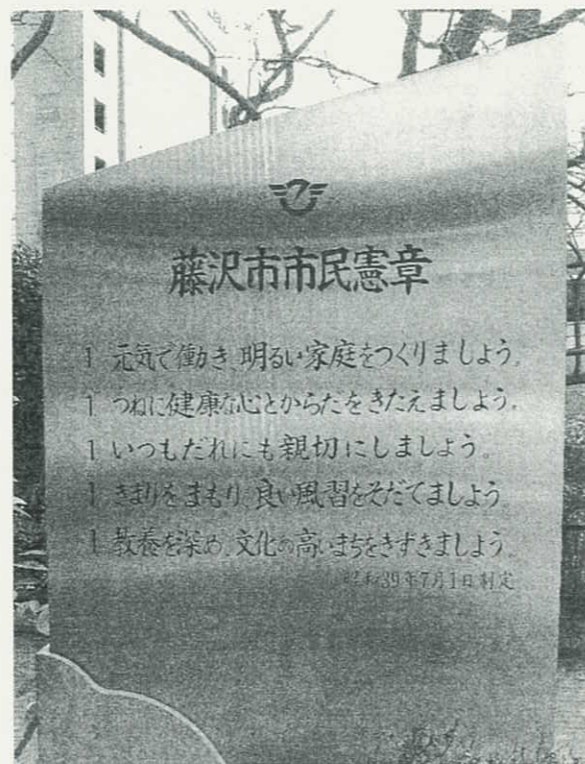 藤沢市市民憲章
1 元気で働き、明るい家庭をつくりましょう。
1 つねに健康な心とからだをきたえましょう。
1 いつもだれにも親切にしましょう。
1 きまりをまもり 良い風習をそだてましょう
1 教養を深め、文化の高いまちをきずきましょう。
昭和39年7月1日制定